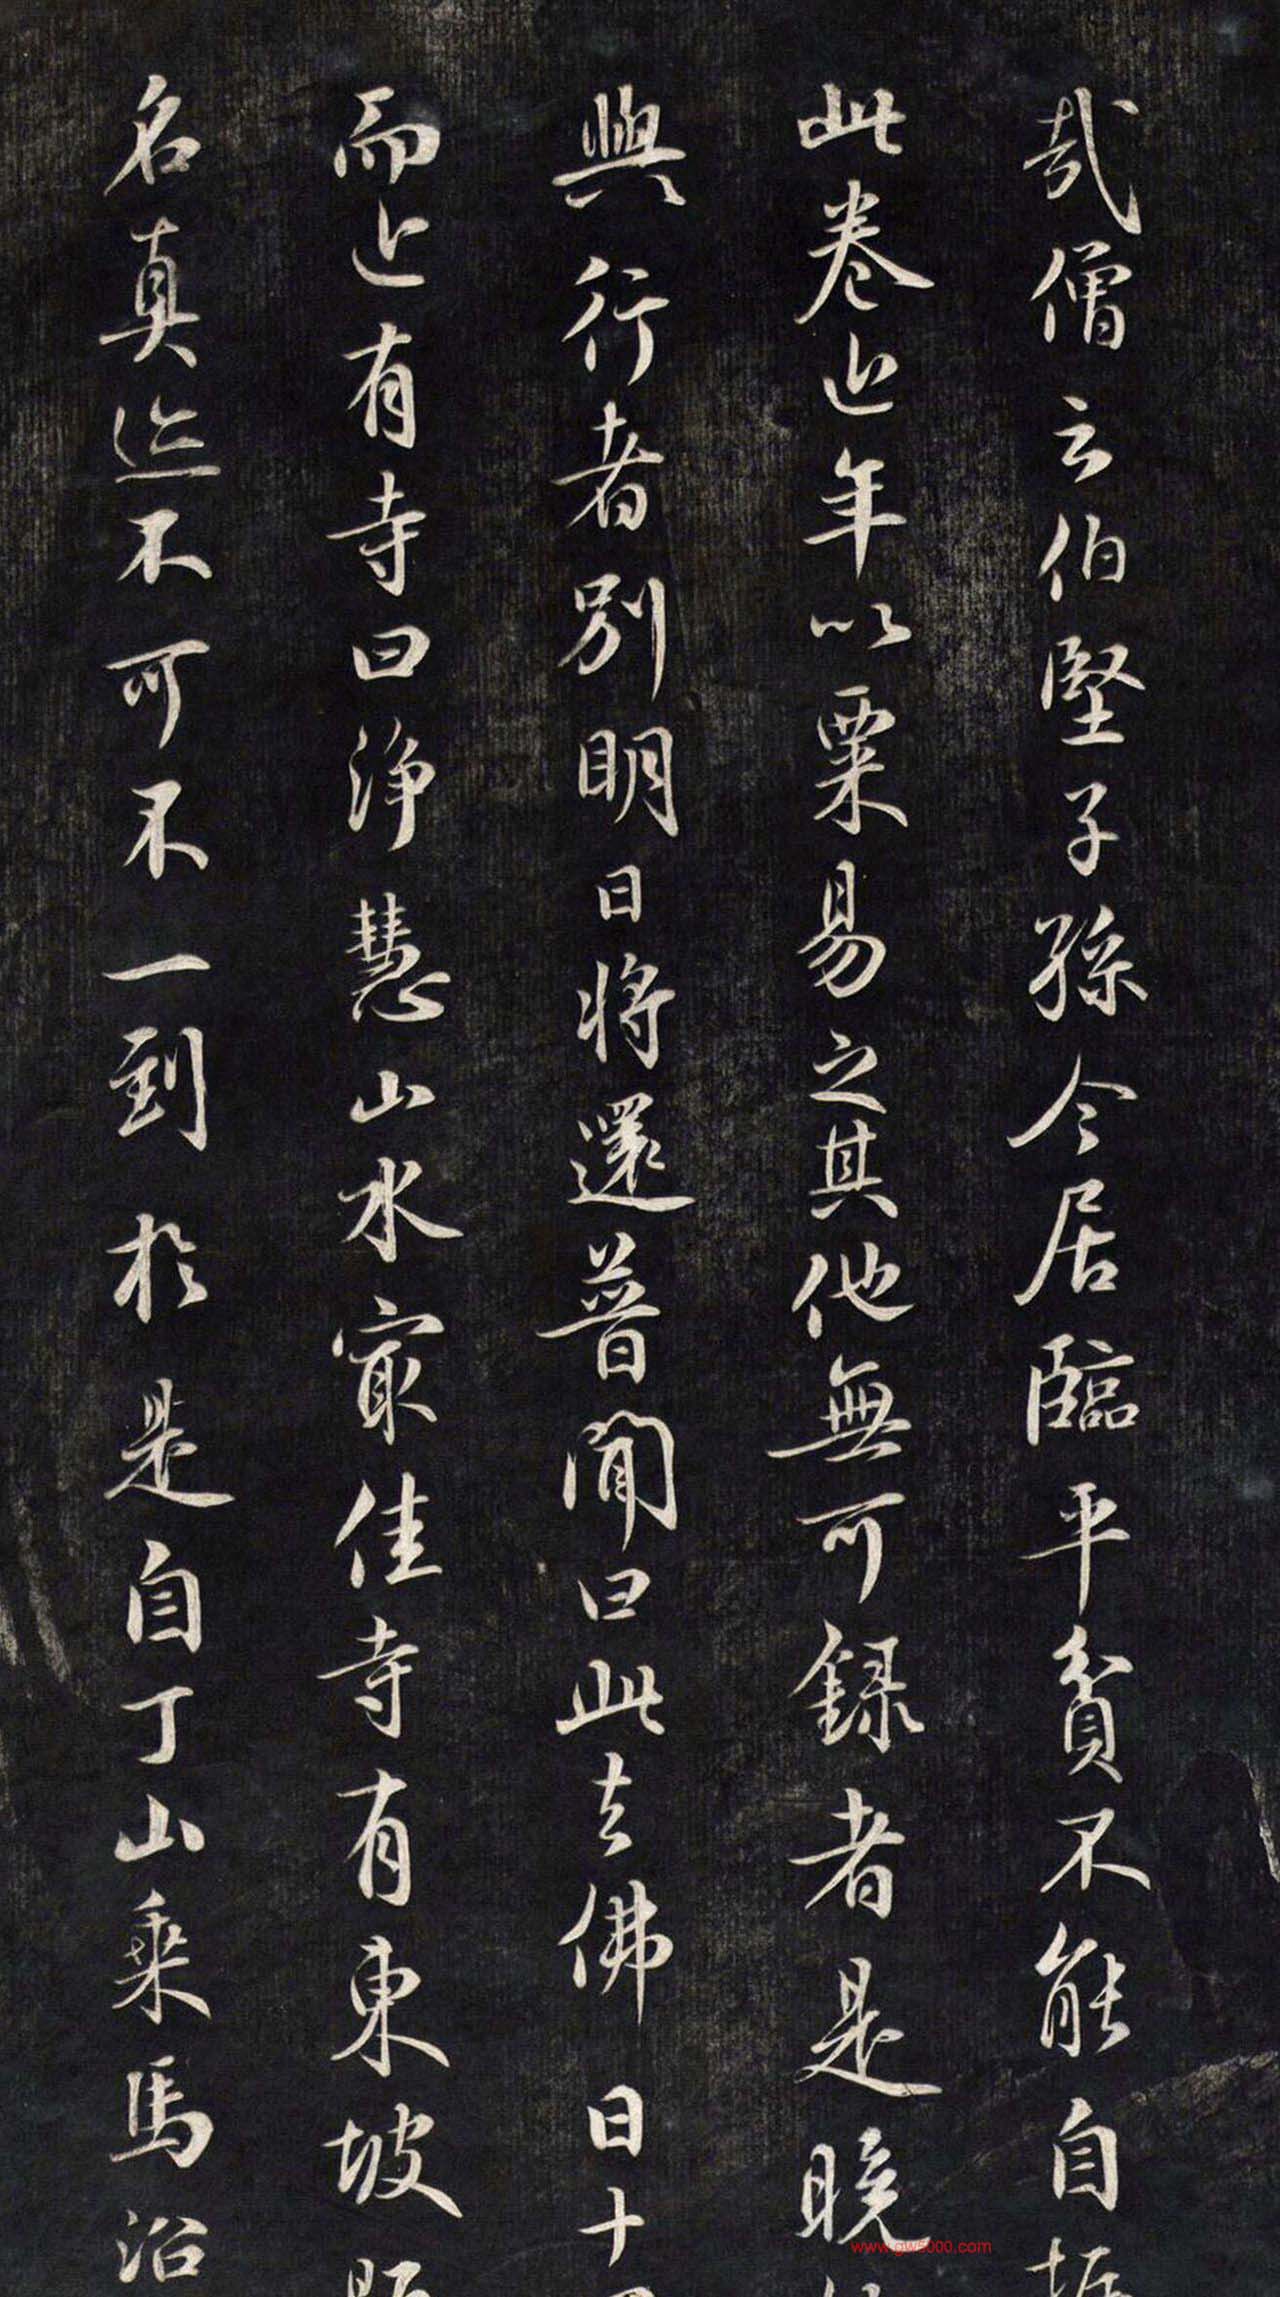 哉僧云伯堅子孫今居臨平貧不能自
此卷近年以粟易之其他無可録者是晚
與行者別明日將還普聞曰此去佛日十
而近有寺曰淨慧山水㝡佳寺有東坡
名真迹不可不一到於是自丁山乘馬沿
www.gw5000.com